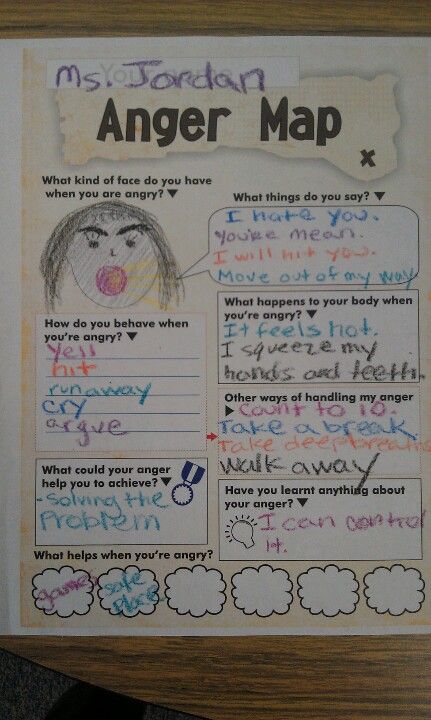 Ms. Jordan
Anger Map
x
What kind of face do you have
when you are angry? ▼
What things do you say? ▼
I hate you.
You're mean.
I will hit you.
Move out of my way
What happens to your body when
you're angry? ▼
It feels hot.
I squeeze my
hands and teeth.
How do you behave when
you're angry? ▼
Yell
hit
run away
cry
argue
Other ways of handling my anger
▶ Count to 10.
Take a break
Take deep breaths
walk away
What could your anger
help you to achieve? ▼
-Solving the
Problem
Have you learnt anything about
your anger? ▼
I can control
it.
What helps when you're angry?
games
safe
place